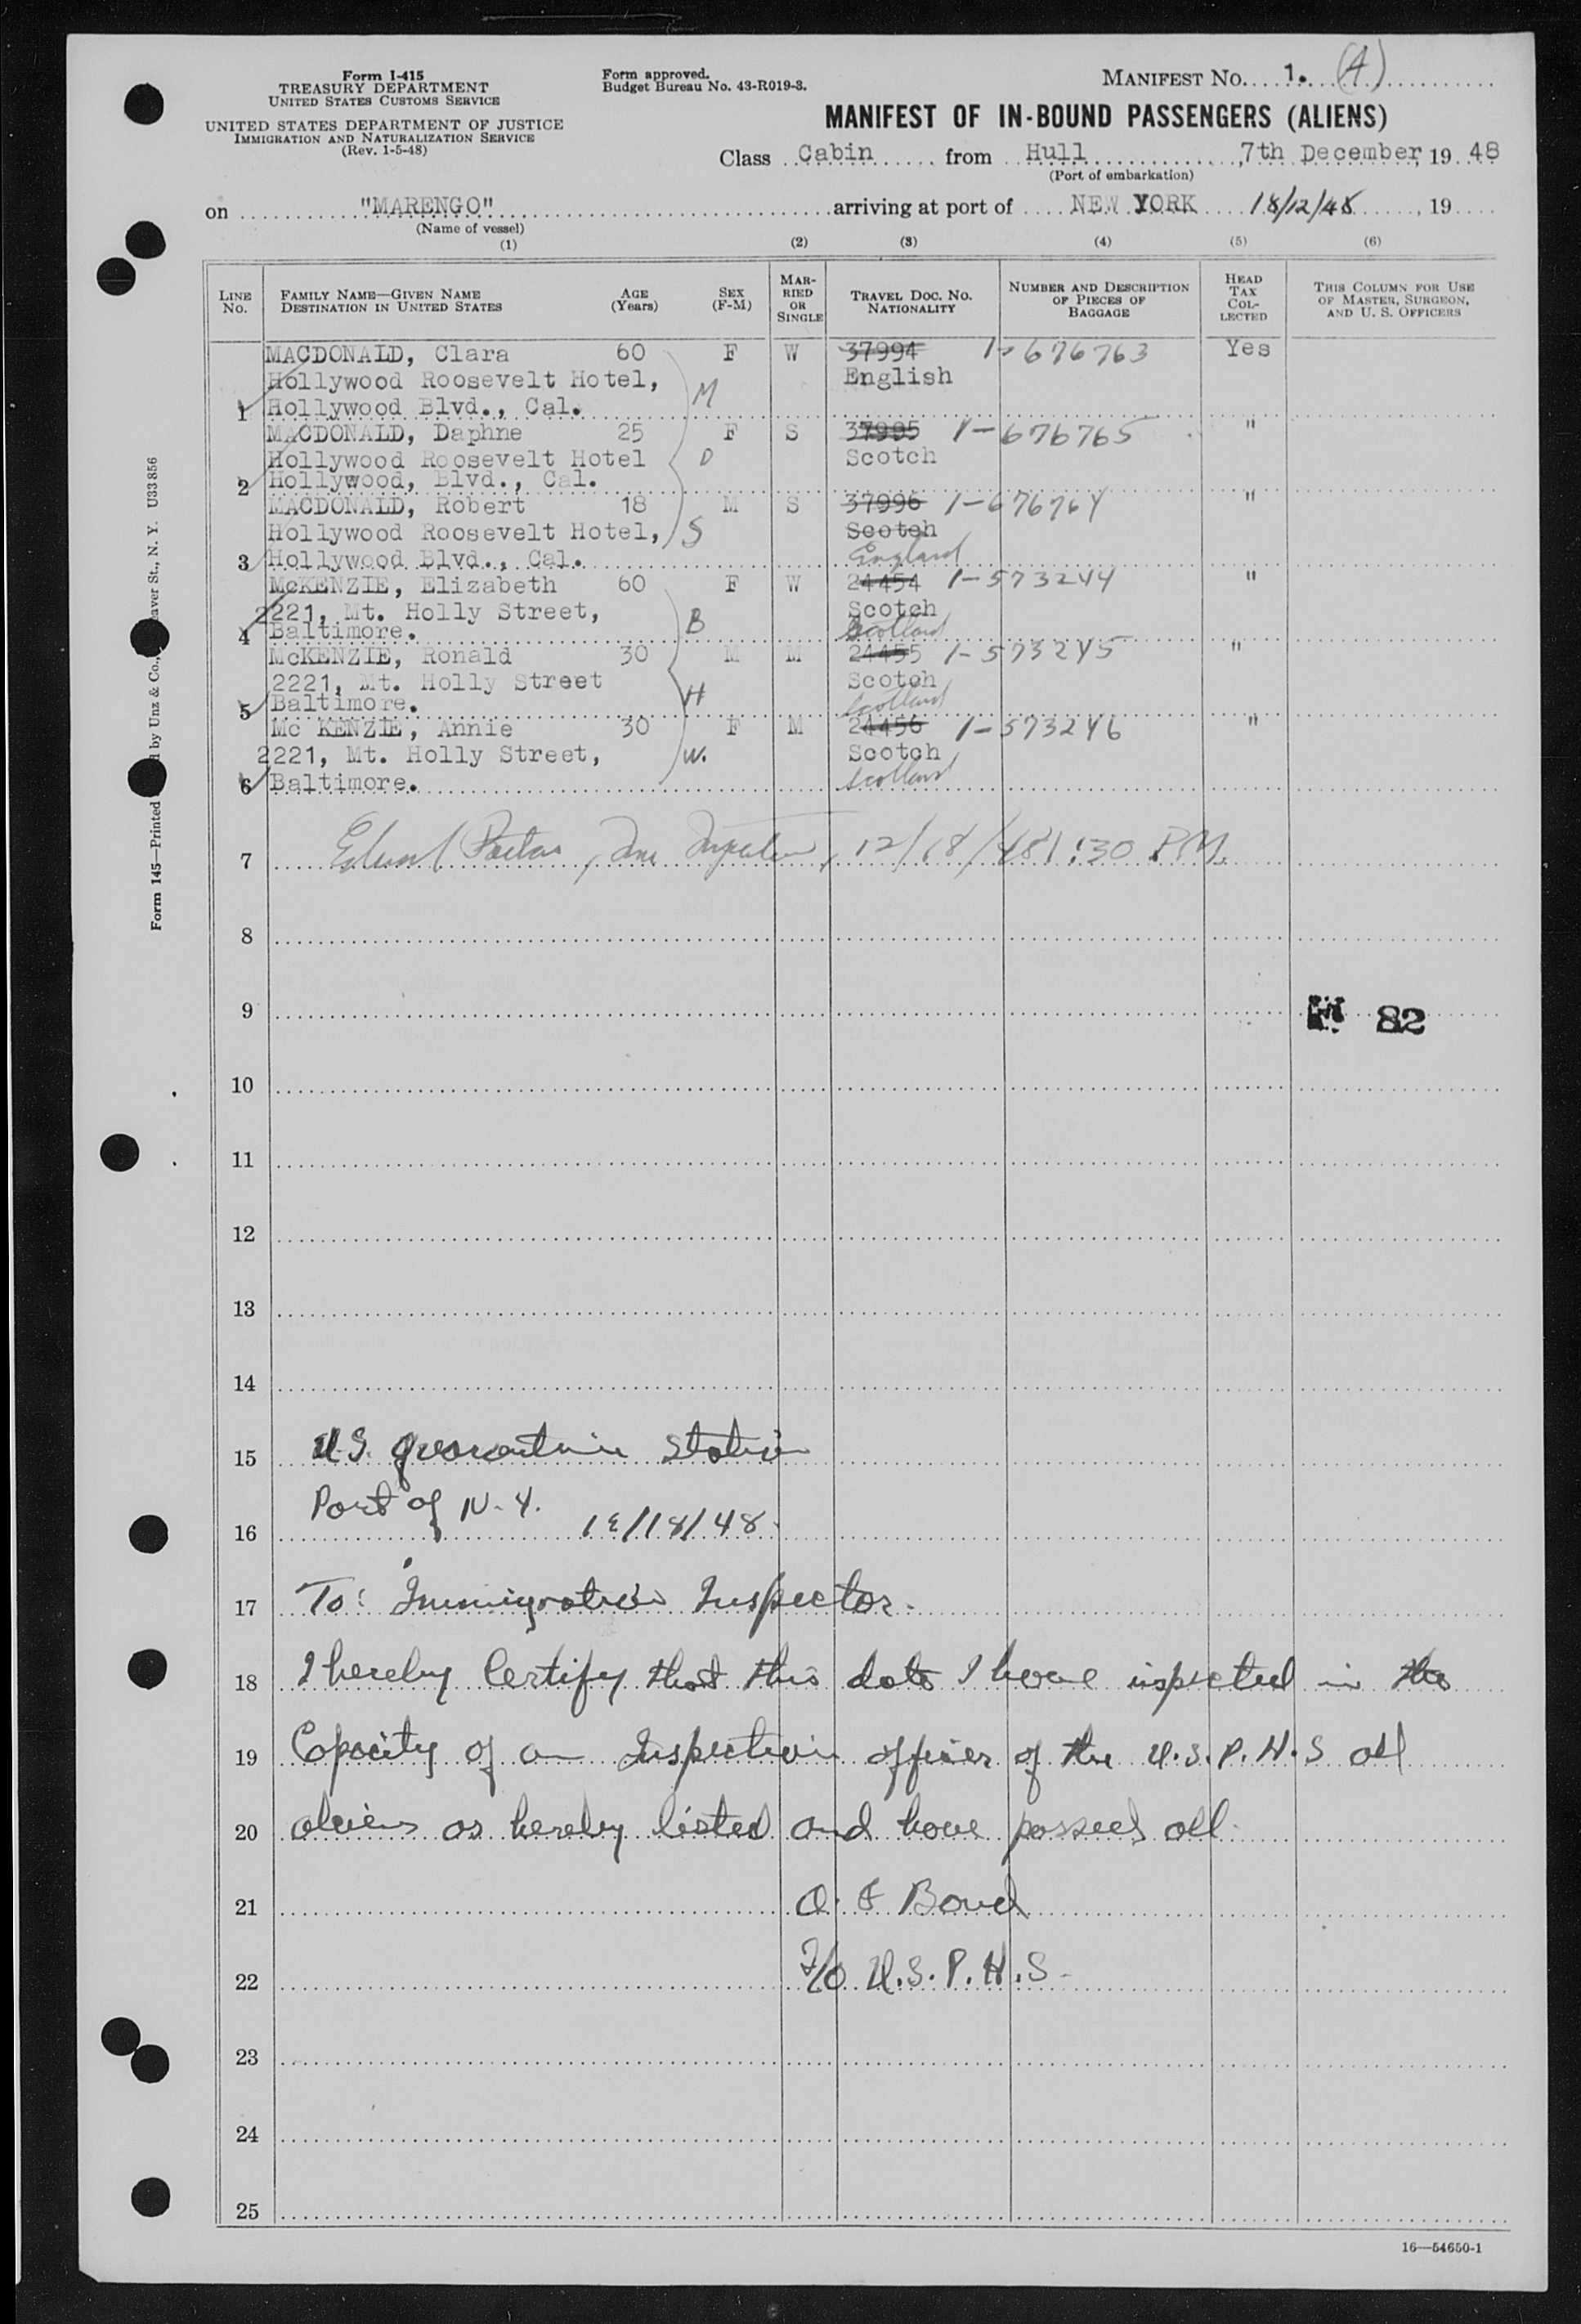 Form I-415
TREASURY DEPARTMENT
UNITED STATES CUSTOMS SERVICE
UNITED STATES DEPARTMENT OF JUSTICE
IMMIGRATION AND NATURALIZATION SERVICE
(Rev. 1-5-48)
Form approved.
Budget Bureau No. 43-R019-3.
MANIFEST NO. 1. (A)
MANIFEST OF IN-BOUND PASSENGERS (ALIENS)
Class Cabin from Hull, 7th December, 19 48
(Port of embarkation)
on "MARENGO" arriving at port of NEW YORK 18/12/48, 19
(Name of vessel)
(1) (2) (3) (4) (5) (6)
LINE NO. FAMILY NAME—GIVEN NAME DESTINATION IN UNITED STATES AGE (Years) SEX (F-M) MARRIED OR SINGLE TRAVEL DOC. NO. NATIONALITY NUMBER AND DESCRIPTION OF PIECES OF BAGGAGE HEAD TAX COLLECTED THIS COLUMN FOR USE OF MASTER, SURGEON, AND U. S. OFFICERS
MACDONALD, Clara 60 F W 37994 1-676763 Yes
Hollywood Roosevelt Hotel, English
1 Hollywood Blvd., Cal. M
MACDONALD, Daphne 25 F S 37995 1-676765 "
Hollywood Roosevelt Hotel D Scotch
2 Hollywood, Blvd., Cal.
MACDONALD, Robert 18 M S 37996 1-676764 "
Hollywood Roosevelt Hotel, S Scotch
3 Hollywood Blvd., Cal. England
McKENZIE, Elizabeth 60 F W 24454 1-573244 "
2221, Mt. Holly Street, B Scotch
4 Baltimore. Scotland
McKENZIE, Ronald 30 M M 24455 1-573245 "
2221, Mt. Holly Street Scotch
5 Baltimore. H Scotland
Mc KENZIE, Annie 30 F M 24456 1-573246 "
2221, Mt. Holly Street, W. Scotch
6 Baltimore. Scotland
7 12/18/48 1:30 P.M.
8
9 82
10
11
12
13
14
15 U.S. Quarantine Station
16 Port of N.Y. 12/18/48
17 To: Immigration Inspector.
18 I hereby Certify that this date I have inspected in the
19 Capacity of an Inspection officer of the U.S.P.H.S all
20 aliens as hereby listed and have passed all.
21
22 I/O U.S.P.H.S.
23
24
25
16—54650-1
Form 145—Printed by Unz & Co., eaver St., N. Y. U33856